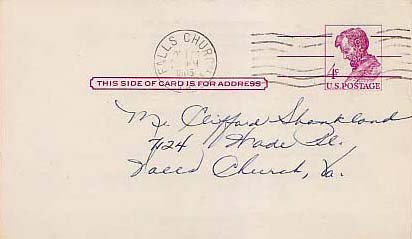 FALLS CHURCH
4¢
U.S. POSTAGE
THIS SIDE OF CARD IS FOR ADDRESS
Mr Clifford Shankland
7124 Wade St.
Falls Church, Va.